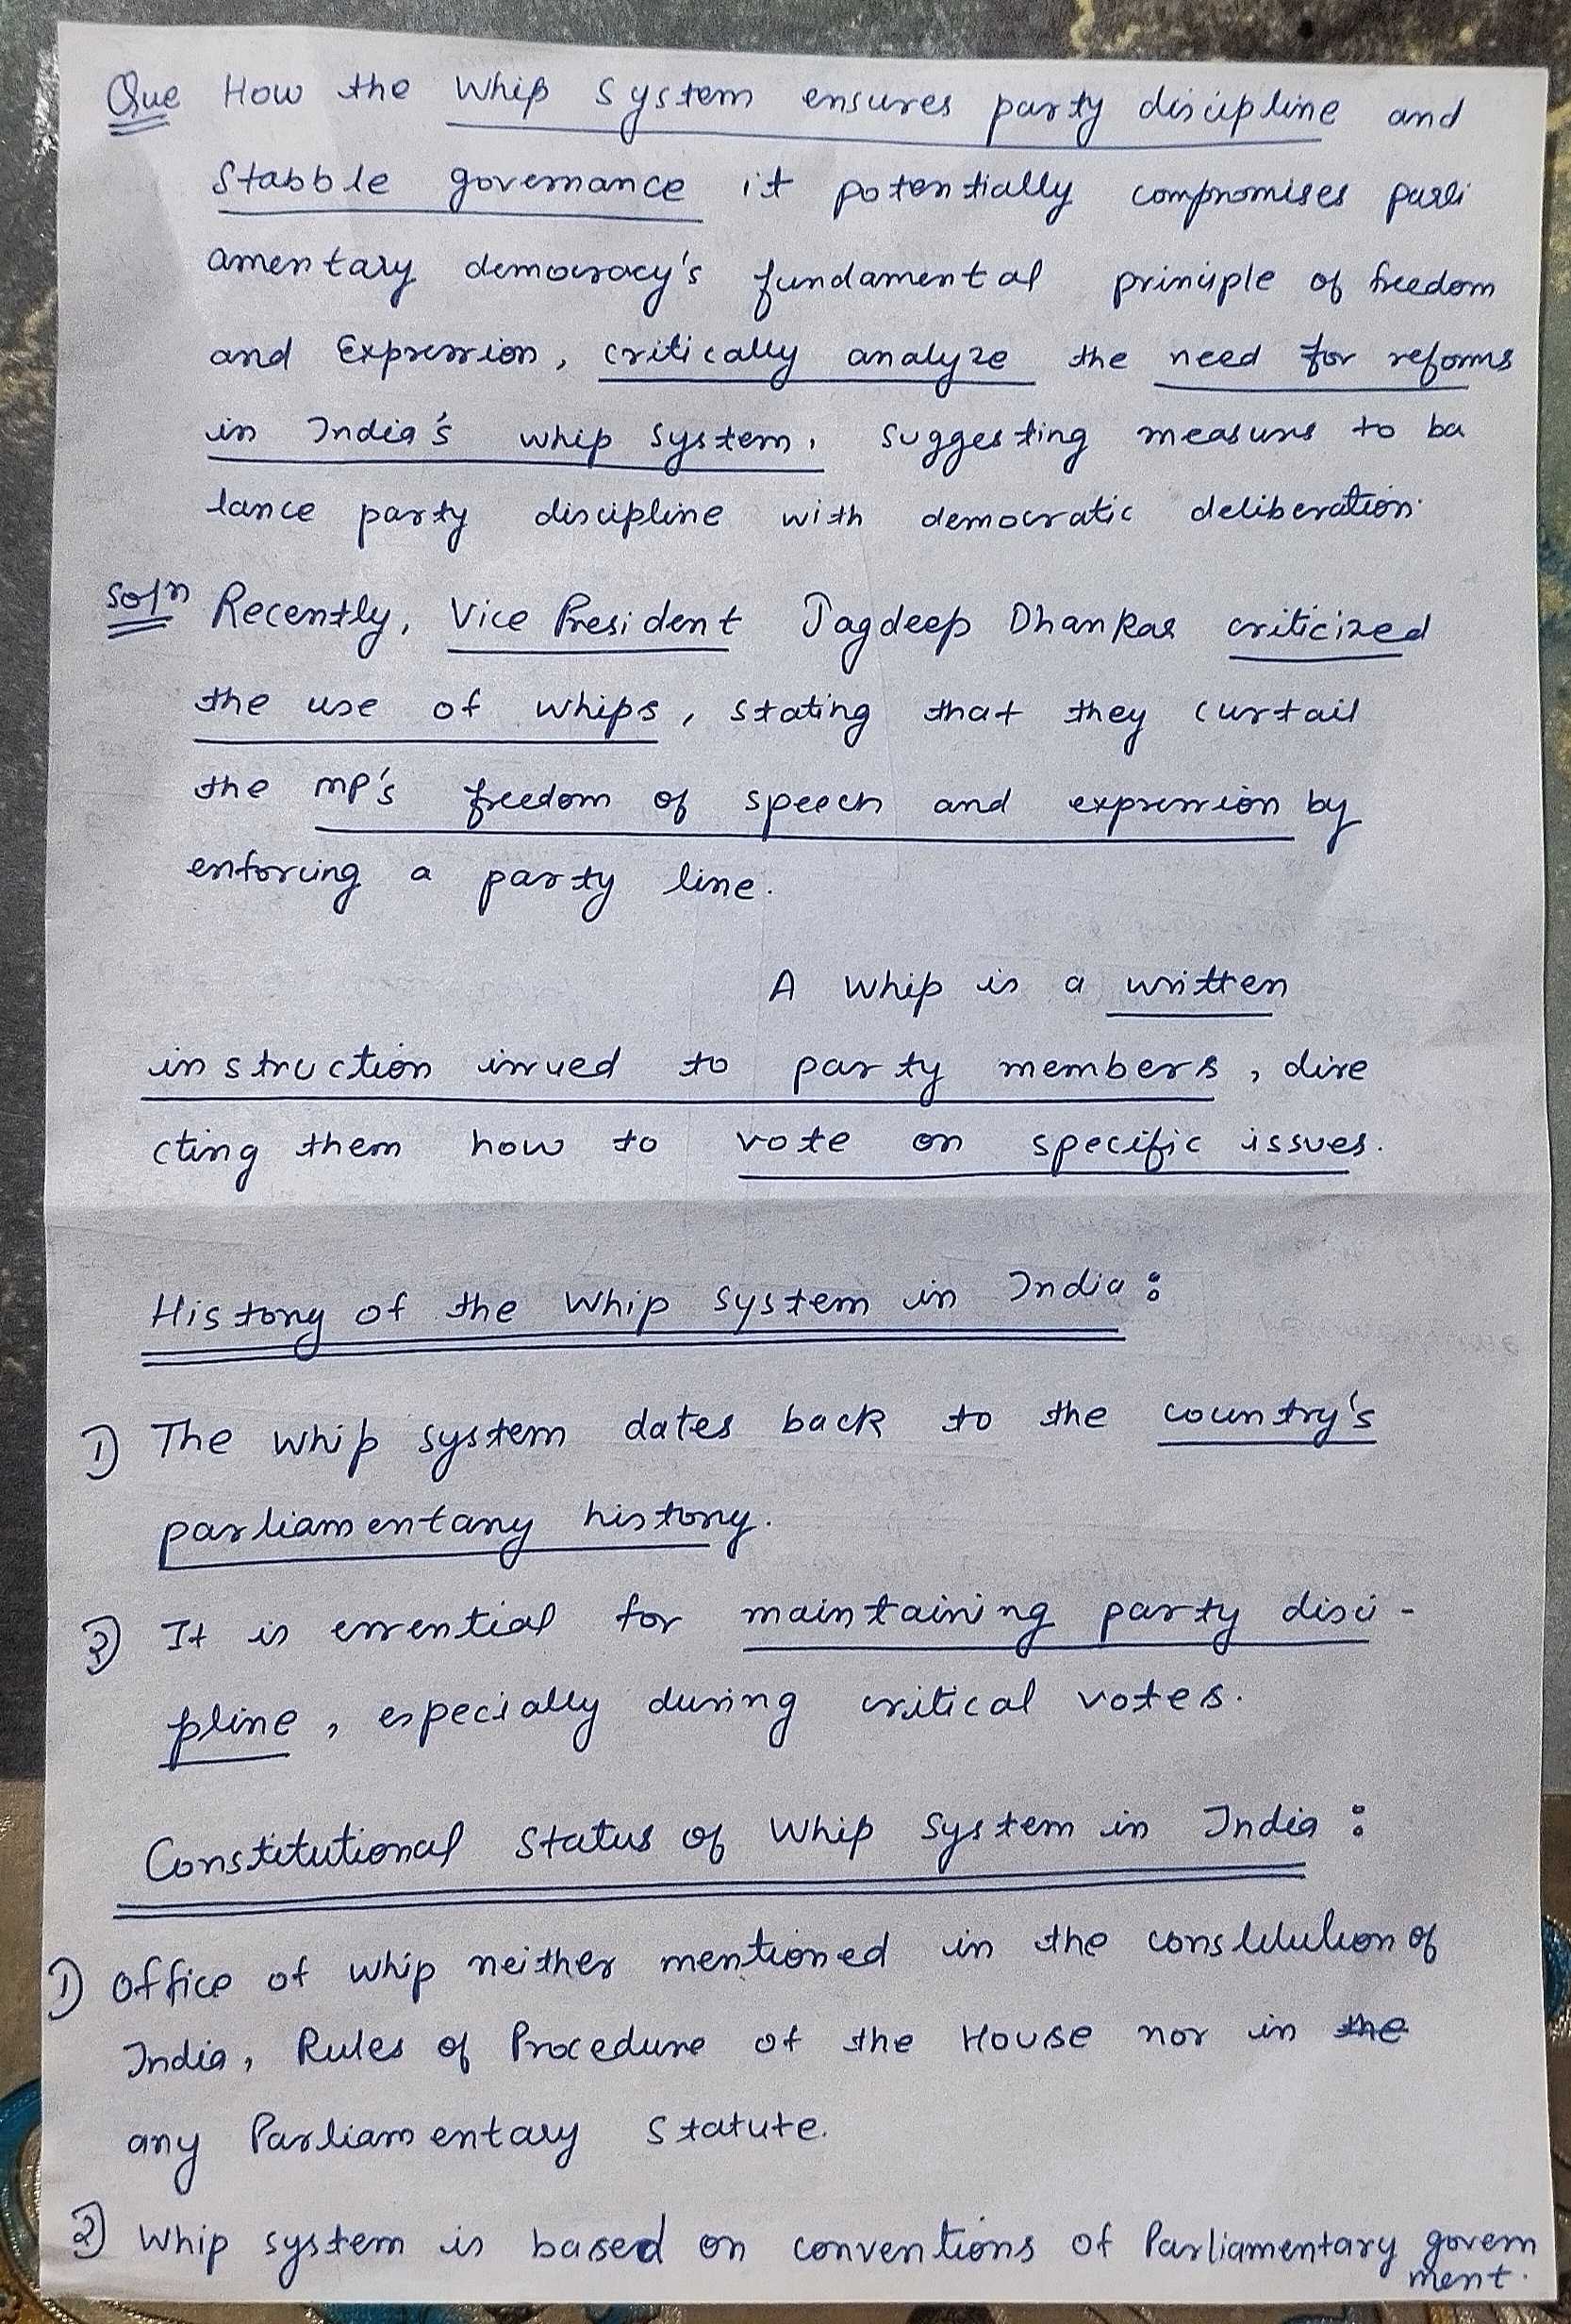 Que How the Whip System ensures party discipline and
Stabble governance it potentially compromises parli
amentary democracy's fundamental principle of freedom
and Expression, critically analyze the need for reforms
in India's whip system, suggesting measures to ba
lance party discipline with democratic deliberation.
Soln Recently, Vice President Jagdeep Dhankar criticized
the use of whips, stating that they curtail
the MP's freedom of speech and expression by
enforcing a party line.
A whip is a written
instruction issued to party members, dire
cting them how to vote on specific issues.
History of the Whip System in India:
1) The whip system dates back to the country's
parliamentary history.
2) It is essential for maintaining party disci-
pline, especially during critical votes.
Constitutional Status of Whip System in India:
1) Office of whip neither mentioned in the constitution of
India, Rules of Procedure of the House nor in the
any Parliamentary Statute.
2) Whip system is based on conventions of Parliamentary govern
ment.